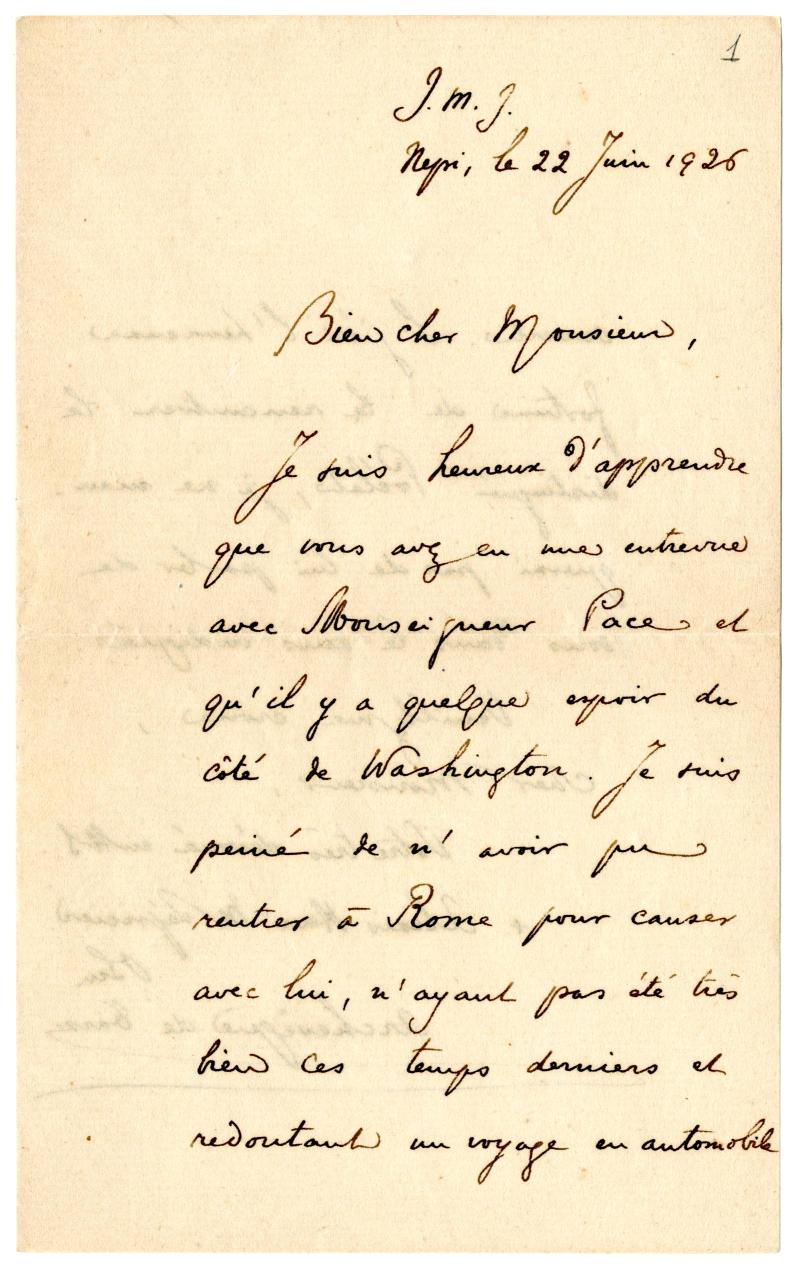 1
J. M. J.
Nepi, le 22 Juin 1926
Bien cher Monsieur,
Je suis heureux d'apprendre
que vous avez eu une entrevue
avec Monseigneur Pace et
qu'il y a quelque espoir du
côté de Washington. Je suis
peiné de n'avoir pu
rentrer à Rome pour causer
avec lui, n'ayant pas été très
bien ces temps derniers et
redoutant un voyage en automobile